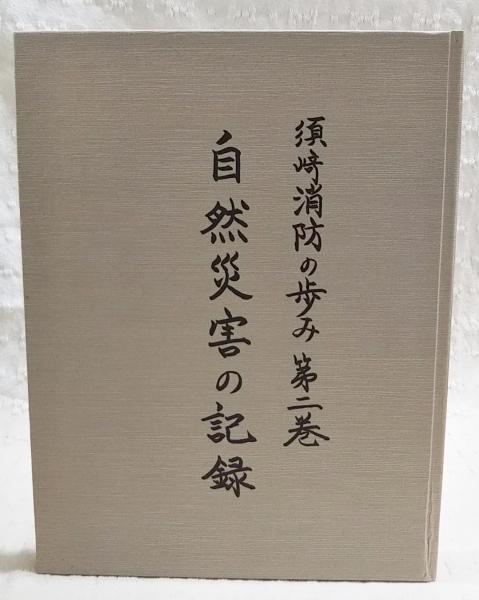 須崎消防の歩み 第二巻
自然災害の記録